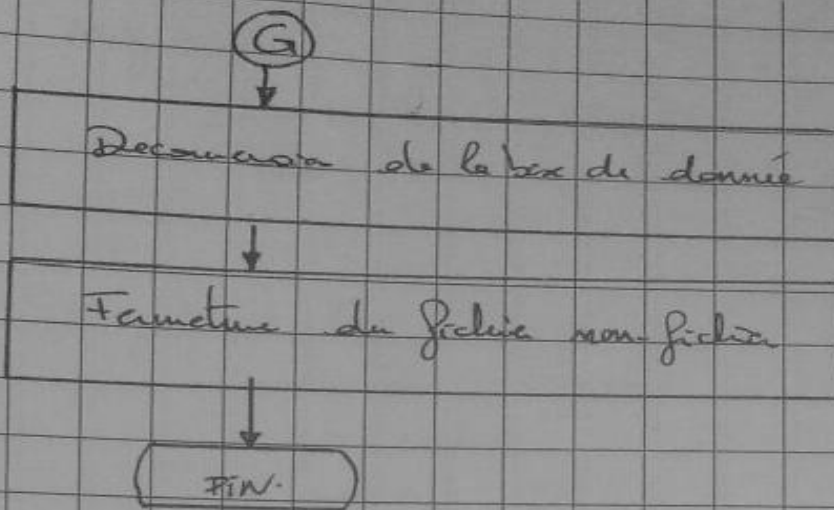 G
Deconnexion de la base de donnée
Fermeture du fichier nom-fichier
FIN.